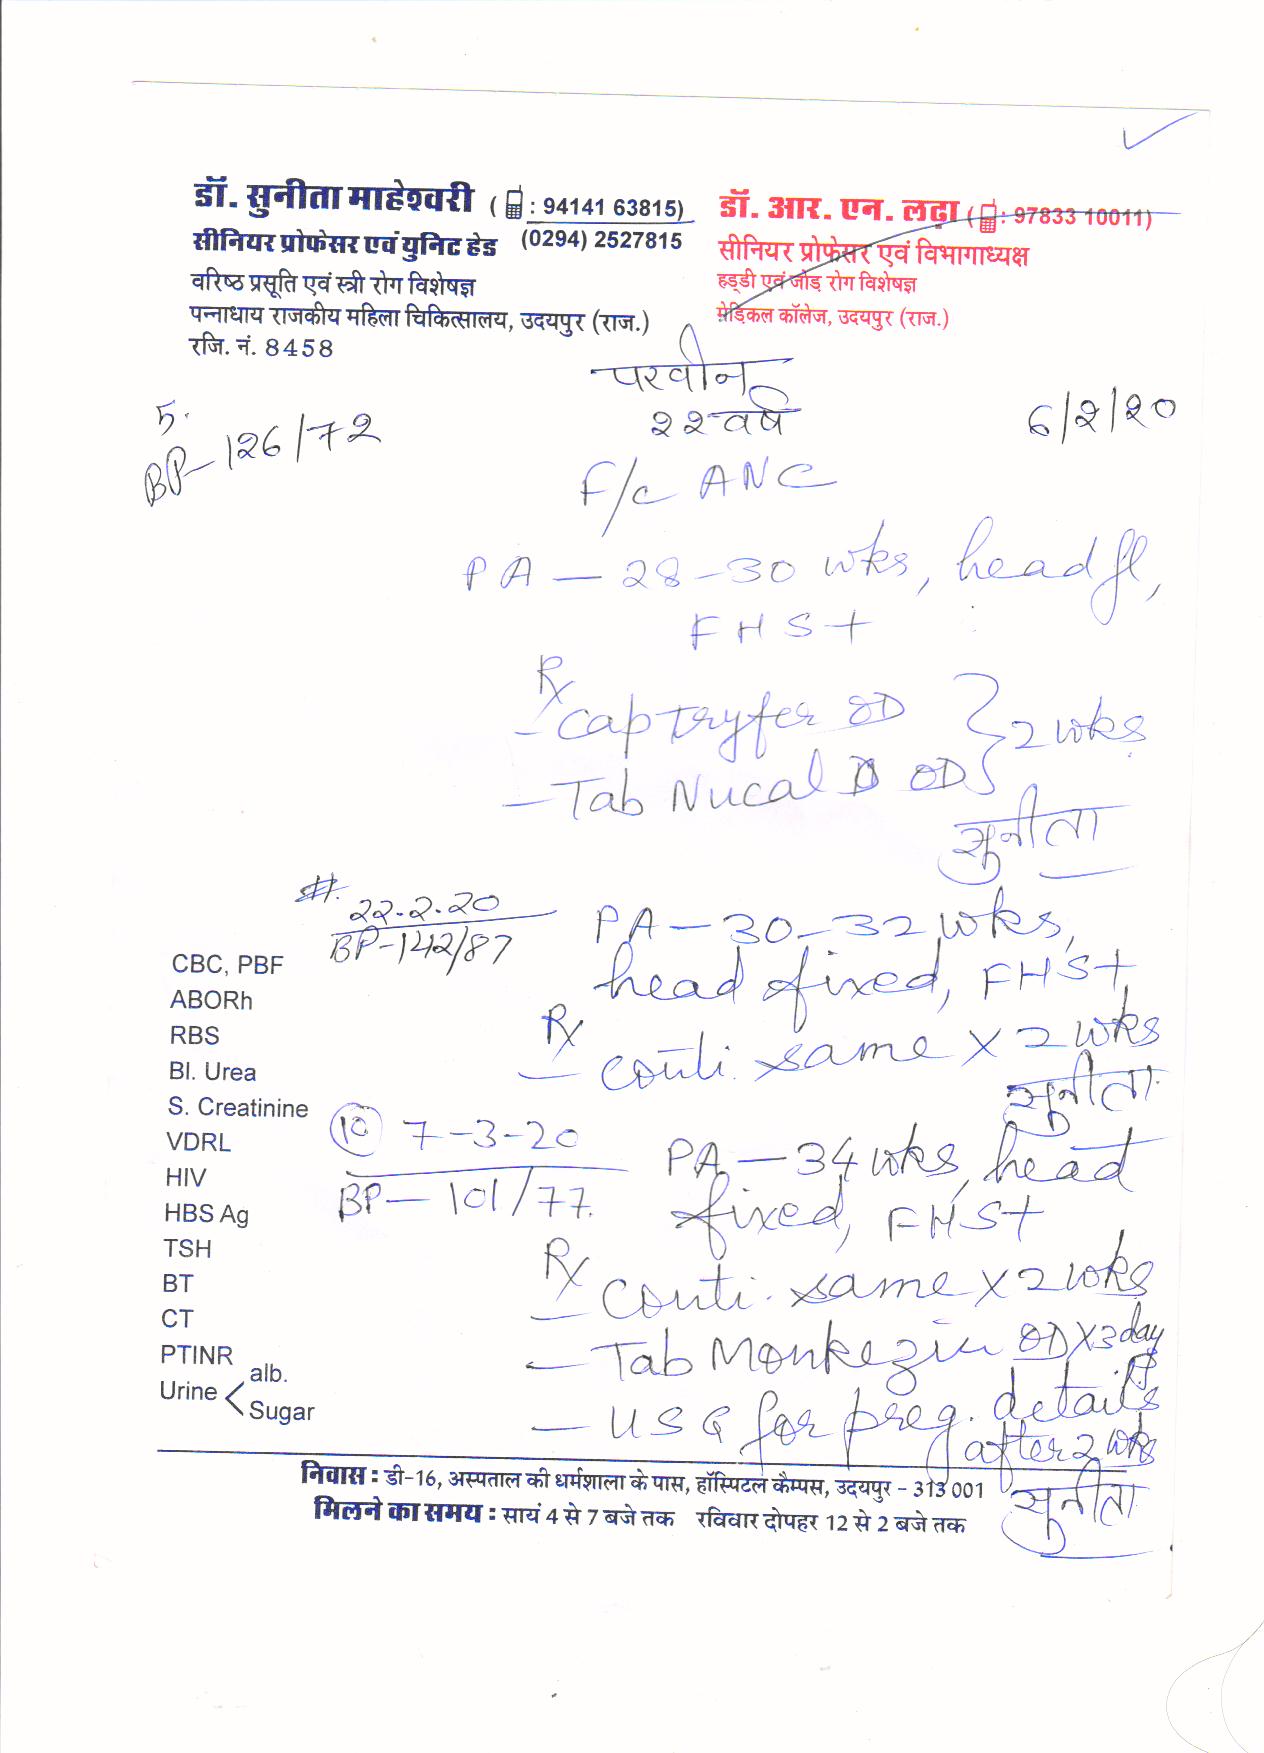 डॉ. सुनीता माहेश्वरी (: 94141 63815)
सीनियर प्रोफेसर एवं युनिट हेड (0294) 2527815
वरिष्ठ प्रसूति एवं स्त्री रोग विशेषज्ञ
पन्नाधाय राजकीय महिला चिकित्सालय, उदयपुर (राज.)
रजि. नं. 8458
डॉ. आर. एन. लढ़ा (: 97833 10011)
सीनियर प्रोफेसर एवं विभागाध्यक्ष
हड्डी एवं जोड़ रोग विशेषज्ञ
मेडिकल कॉलेज, उदयपुर (राज.)
परवीन
२२ वर्ष
6/2/20
5.
BP- 126/72
F/c ANC
PA - 28-30 wks, head fl,
FHS+
Rx
- Cap Tryfer OD } 2 wks
- Tab Nucal D OD
सुनीता
22.2.20
BP-142/87
PA - 30-32 wks,
head fixed, FHS+
Rx
- Conti. same x 2 wks
सुनीता
10 7-3-20
BP- 101/77.
PA - 34 wks, head
fixed, FHS+
Rx
- Conti. same x 2 wks
- Tab Monkezin OD x 3 day
- USG for preg. details
after 2 wks
सुनीता
CBC, PBF
ABORh
RBS
Bl. Urea
S. Creatinine
VDRL
HIV
HBS Ag
TSH
BT
CT
PTINR
Urine < alb.
Sugar
निवास : डी-16, अस्पताल की धर्मशाला के पास, हॉस्पिटल कैम्पस, उदयपुर - 313 001
मिलने का समय : सायं 4 से 7 बजे तक रविवार दोपहर 12 से 2 बजे तक